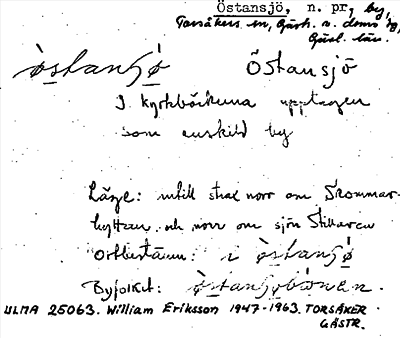 Östansjö, n. pr, by,
Torsåkers sn, Gästr. n. doms
Gävl. län.
òstanʃö̀ Östansjö
I kyrkböckerna upptagen
som enskild by
Läge: intill strax norr om Skommar-
hyttan och norr om sjön Stillaren
Ortbestämn: i òstanʃö̀
Byfolket: òstanʃöbönen.
ULMA 25063. William Eriksson 1947-1963. TORSÅKER
GÄSTR.